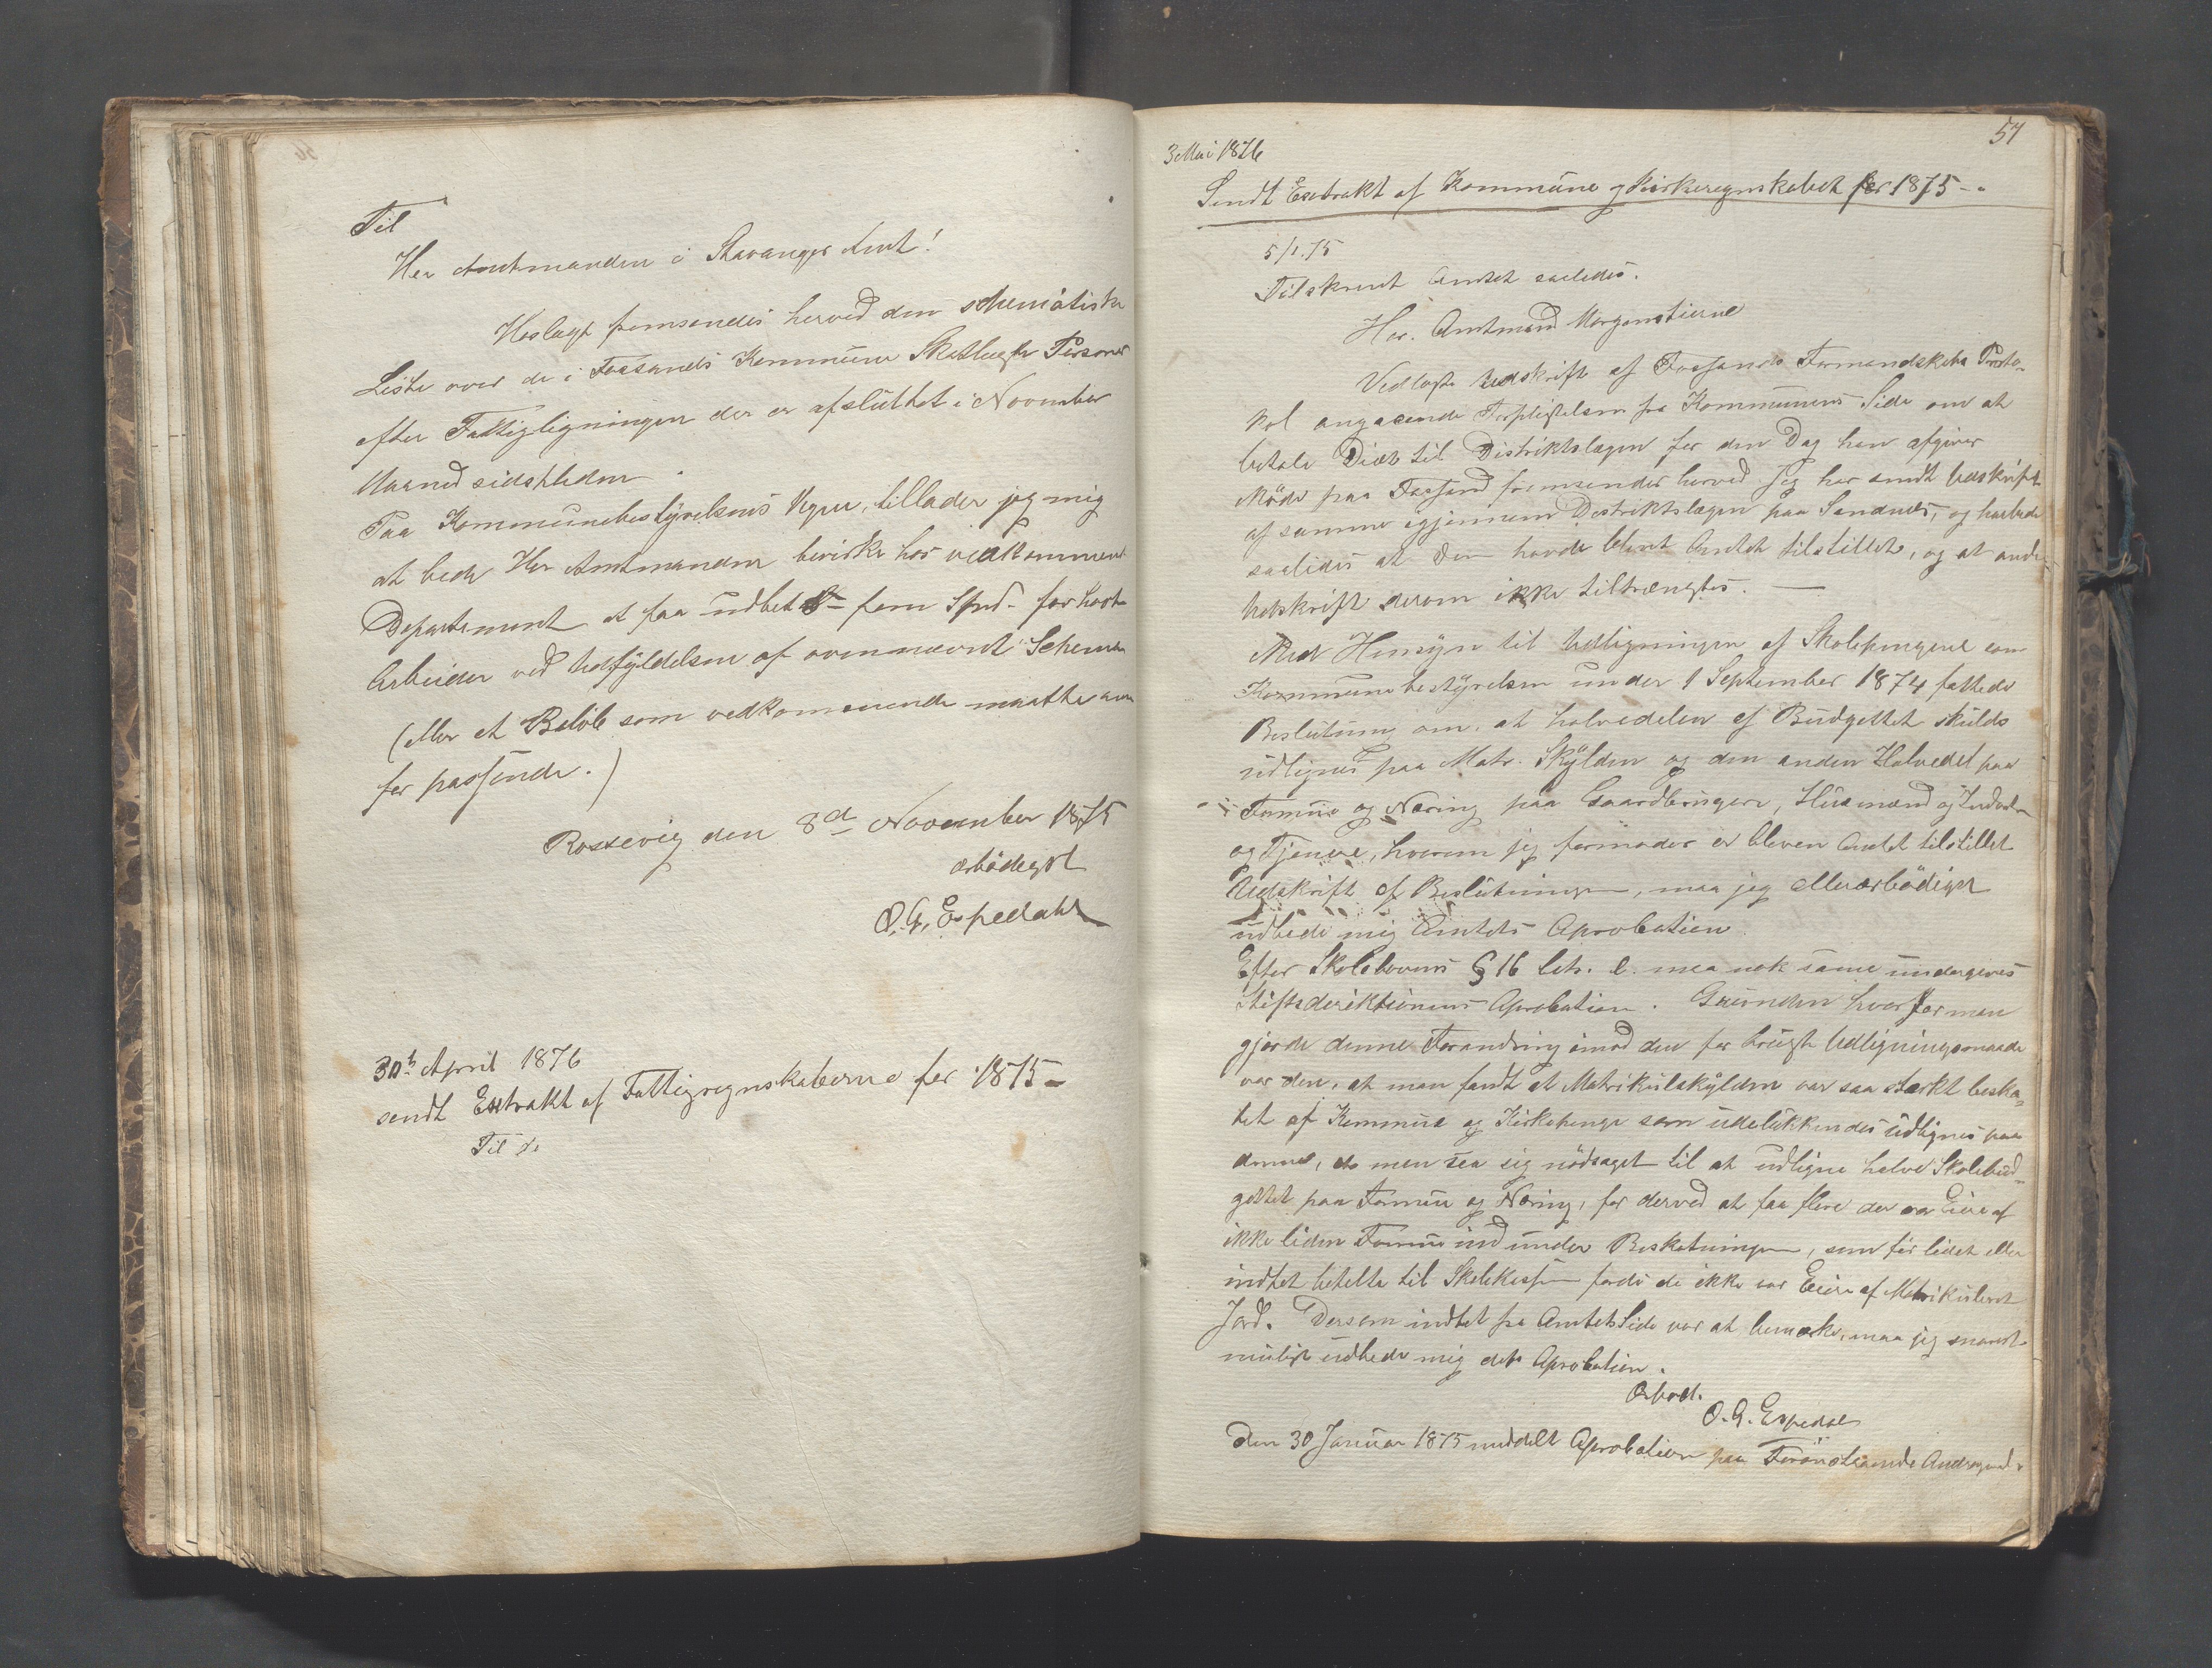 Til
Her Amtmanden i Stavanger Amt!
Hoslagt fremsendes herved den schematiske
Liste over de i Fossands Kommune Skatlagte Personer
efter Fattigligningen der er afsluttet i November
Maaned sidstleden.
Paa Kommunebestyrelsens Vegne, tillader jeg mig
at bede Her Amtmanden bevirke hos vedkommende
Departement at faa udbetalt fem Spd. for hart
Arbeider ved Udfyldelsen af ovennævnte Schema
(eller et Beløb som vedkommende maatte anse
for passende.)
Rossevig den 8de November 1875
ærbødigst
O. G. Espedahl
30te April 1876
sendt Extrakt af Fattigregnskaberne for 1875 –
Til
57
3 Mai 1876
Sendt Extrakt af Kommune og Kirkeregnskabet for 1875 –
5/1.75
Tilskrevet Amtet saaledes.
Hr. Amtmand Morgenstierne
Vedlagte Udskrift af Fossands Formandskabs Proto-
kol angaaende Forpligtelsen fra Kommunens Side om at
betale Diæt til Distriktslægen for den Dag han afgiver
Møde paa Fossand fremsendes herved. Jeg har sendt Udskrift
af samme igjennem Distriktslægen paa Sandnes, og
saaledes at den havde blevet Amtet tilstillet, og at anden
Udskrift derom ikke tiltrængtes. —
Med Hensyn til Udligningen af Skolepengene som
Kommunebestyrelsen under 1 September 1874 fattede
Beslutning om, at halvedelen af Budgettet skulde
udlignes paa Matr. Skylden og den anden Halvedel paa
Formue og Næring paa Gaardbrugere, Husmænd og Inderster
og Tjenere, hvorom jeg formoder er bleven Amtet tilstillet
Udskrift af Beslutningen, maa jeg allerærbødigst
udbede mig Amtets Aprobation.
Efter Skolelovens § 16 Litr. e. maa nok same undergives
Stiftsdirektionens Aprobation. Grunden hvorfor man
gjorde denne Forandring imod den før brugte Udligningsmaade
var den, at man fandt at Matrikulskylden var saa stærkt beska-
tet af Kommune og Kirkepenge som udelukkendes udlignes paa
denne, da man saa sig nødsaget til at udligne halve Skolebud-
gettet paa Formue og Næring, for derved at faa flere der var Eiere af
ikke liden Formue ind under Beskatningen, som før lidet eller
indtet betalte til Skolekassen fordi de ikke var Eiere af Matrikuleret
Jord. Dersom indtet fra Amtets Side var at bemærke, maa jeg snarest
muligt udbede mig dets Aprobation.
Ærbød.
O. G. Espedal
Den 30 Januar 1875 meddelt Aprobation paa Foranstaaende Andragende.